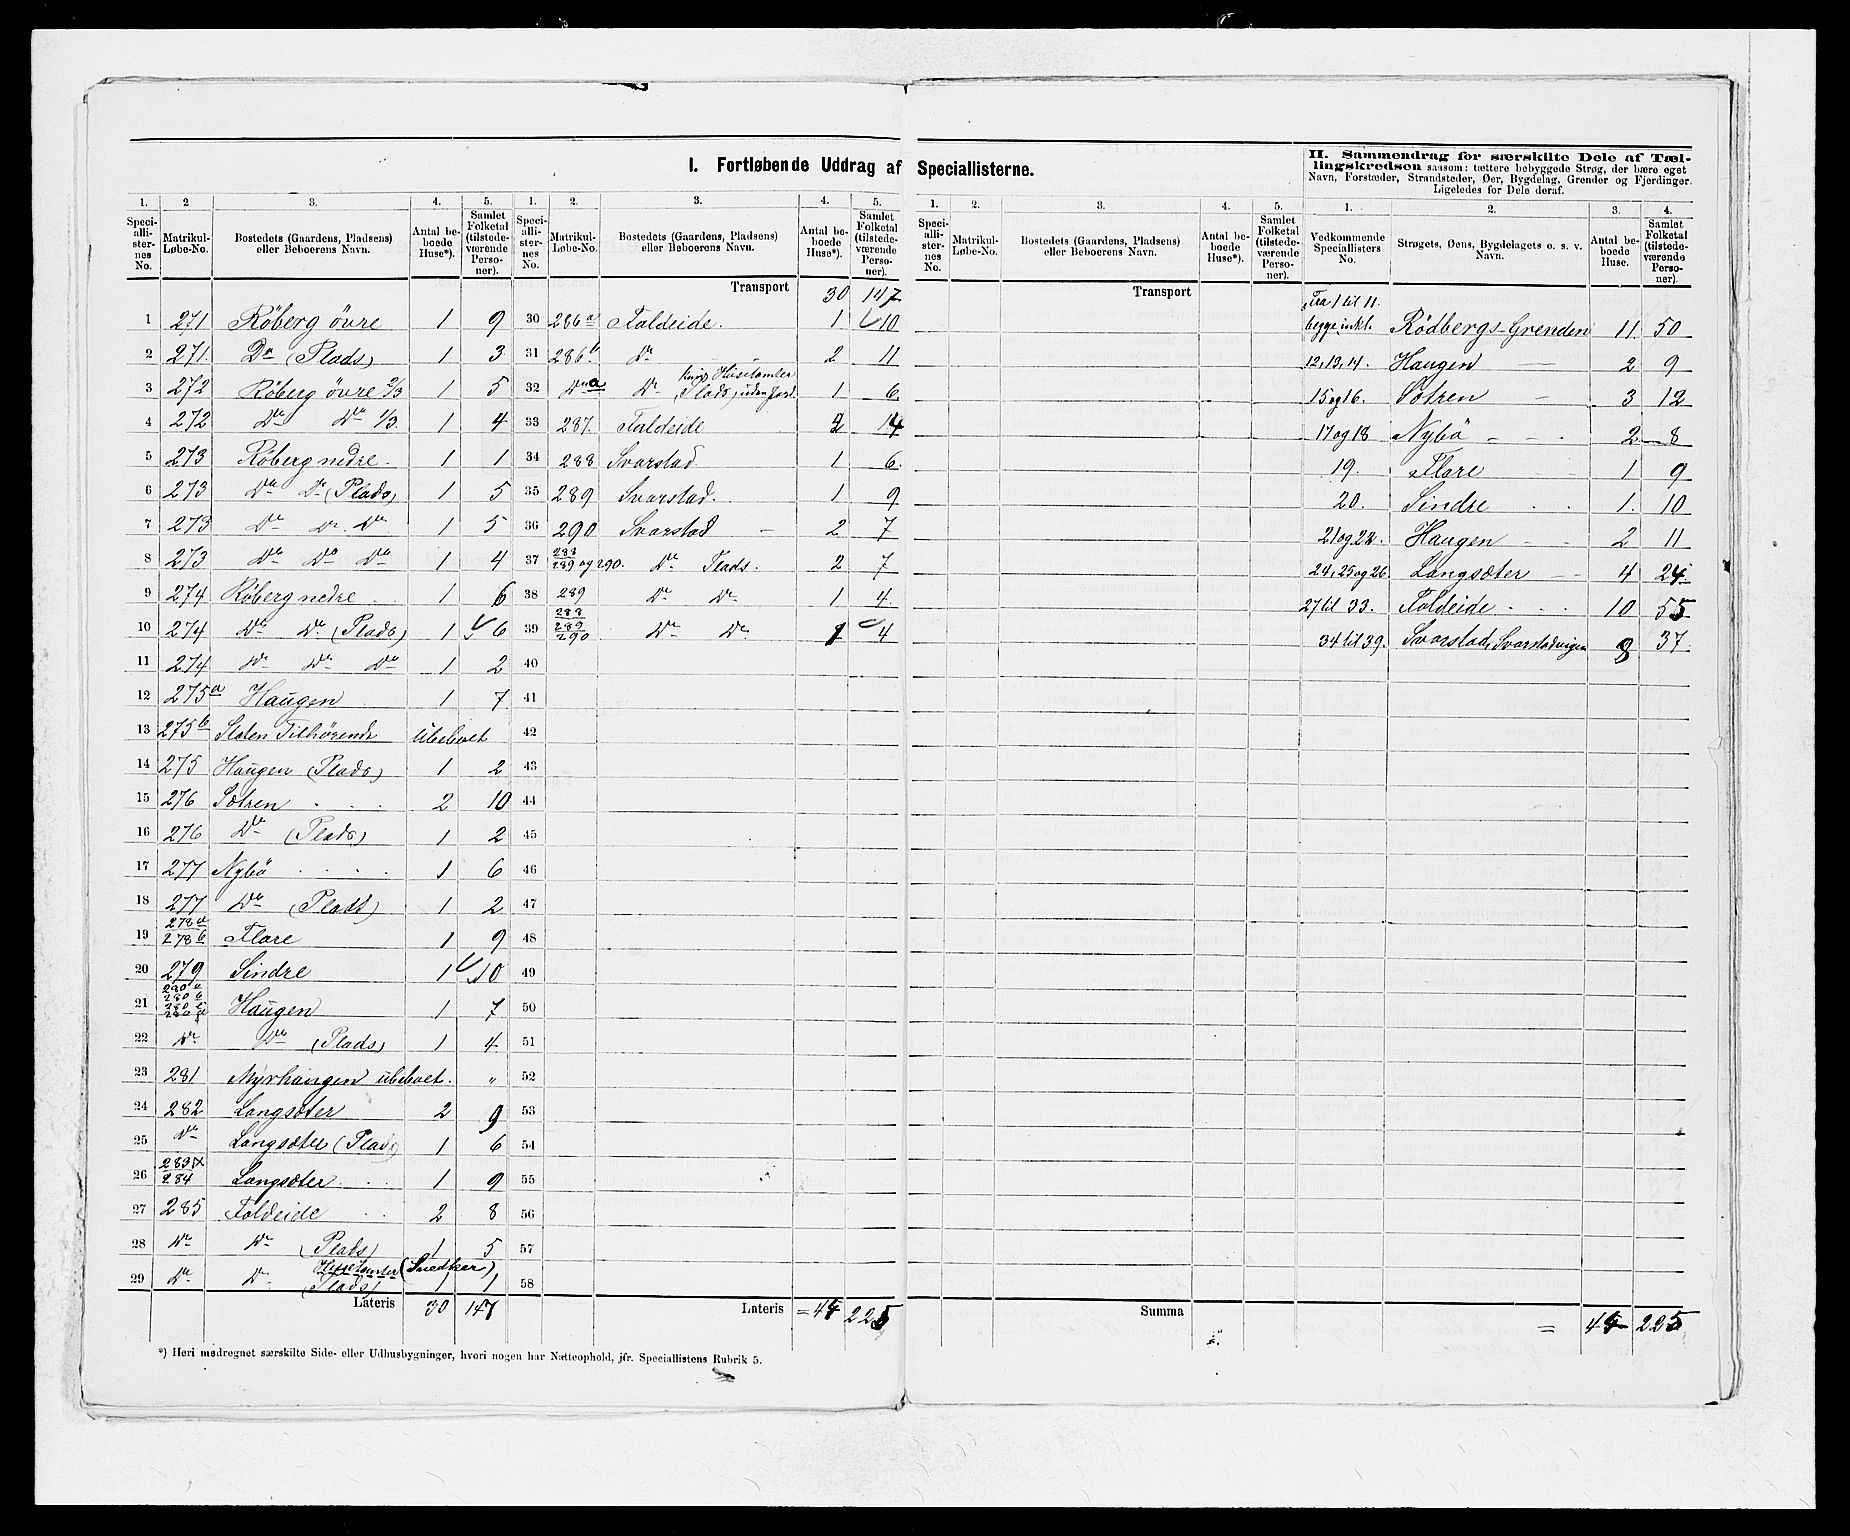 I. Fortløbende Uddrag af Speciallisterne.
II. Sammendrag for særskilte Dele af Tæl-
lingskredsen saasom: tættere bebyggede Strøg, der bære eget
Navn, Forstæder, Strandsteder, Øer, Bygdelag, Grender og Fjerdinger.
Ligeledes for Dele deraf.
1. 2 3. 4. 5.
Speciallisternes No. Matrikul-Løbe-No. Bostedets (Gaardens, Pladsens) eller Beboerens Navn. Antal beboede Huse*). Samlet Folketal (tilstedeværende Personer).
1 271 Röberg övre 1 9
2 271. Do (Plads) 1 3
3 272 Röberg övre 2/3 1 5
4 272 Do Do 1/3 1 4
5 273 Röberg nedre. 1 1
6 273 Do Do (Plads) 1 5
7 273 Do Do Do 1 5
8 273 Do Do Do 1 4
9 274 Röberg nedre 1 6
10 274 Do Do (Plads) 1 6
11 274 Do Do Do 1 2
12 275a Haugen 1 7
13 275b Staten Tilhørende ubeboet
14 275 Haugen (Plads) 1 2
15 276 Sætren 2 10
16 276 Do (Plads) 1 2
17 277 Nybö 1 6
18 277 Do (Plads) 1 2
19 278a 278b Flore 1 9
20 279 Sindre 1 10
21 280a 280b Haugen 1 7
22 Do Do (Plads) 1 4
23 281 Myrhaugen ubeboet. "
24 282 Langsæter 2 9
25 Do Langsæter (Plads) 1 6
26 283 284 Langsæter 1 9
27 285 Faldeide 2 8
28 Do Do (Plads) 1 5
29 Do Do (Plads) (Snedker) 1 1
Lateris 30 147
1. 2. 3. 4. 5.
Speciallisternes No. Matrikul-Løbe-No. Bostedets (Gaardens, Pladsens) eller Beboerens Navn. Antal beboede Huse*). Samlet Folketal (tilstedeværende Personer).
Transport 30 147
30 286a Faldeide. 1 10
31 286b Do 2 11
32 Do a Do Plads, uden Jord. 1 6
33 287. Faldeide 2 14
34 288 Svarstad 1 6.
35 289 Svarstad. 1 9
36 290 Svarstad 2 7
37 288 289 og 290. Do Plads. 2 7
38 289 Do Do 1 4.
39 288 289 290 Do Do 1 4
40
41
42
43
44
45
46
47
48
49
50
51
52
53
54
55
56
57
58
Lateris = 44 225
1. 2. 3. 4. 5.
Speciallisternes No. Matrikul-Løbe-No. Bostedets (Gaardens, Pladsens) eller Beboerens Navn. Antal beboede Huse*). Samlet Folketal (tilstedeværende Personer).
Transport
Summa
1. 2. 3. 4.
Vedkommende Speciallisters No. Strøgets, Øens, Bygdelagets o. s. v. Navn. Antal beboede Huse. Samlet Folketal (tilstedeværende Personer).
Fra 1 til 11.
begge inkl. Rödbergs-Grenden 11. 50
12, 13, 14. Haugen 2 9
15 og 16. Sætren 3 12
17 og 18 Nybö 2 8
19. Flore 1 9
20. Sindre 1. 10
21 og 22. Haugen 2 11
24, 25 og 26 Langsæter 4 24
27 til 33. Faldeide 10 55
34 til 39. Svarstad, Svarstadvigen 8 37.
= 225
*) Heri medregnet særskilte Side- eller Udhusbygninger, hvori nogen har Natteophold, jfr. Speciallistens Rubrik 5.